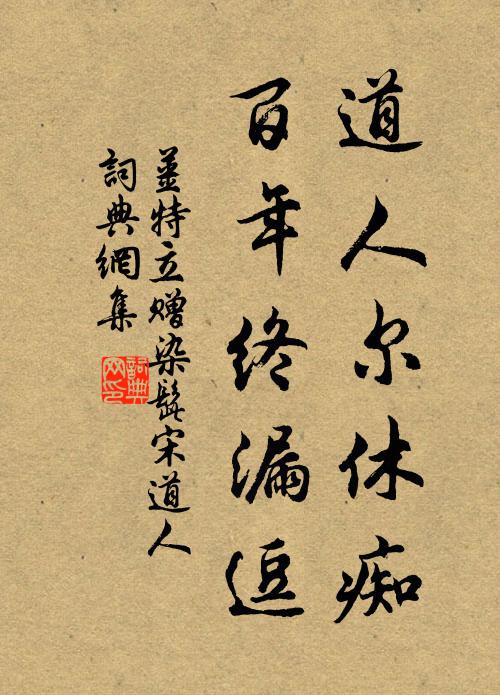 道人尔休痴
百年终漏逗
姜特立赠染髭宋道人
詞典網集
詞典网印